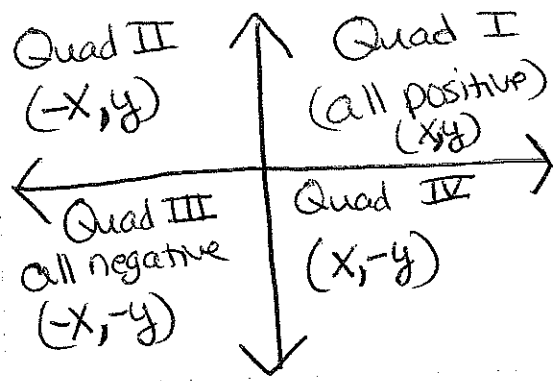 Quad II
(-x, y)
Quad I
(all positive)
(x,y)
Quad III
all negative
(-x, -y)
Quad IV
(x, -y)